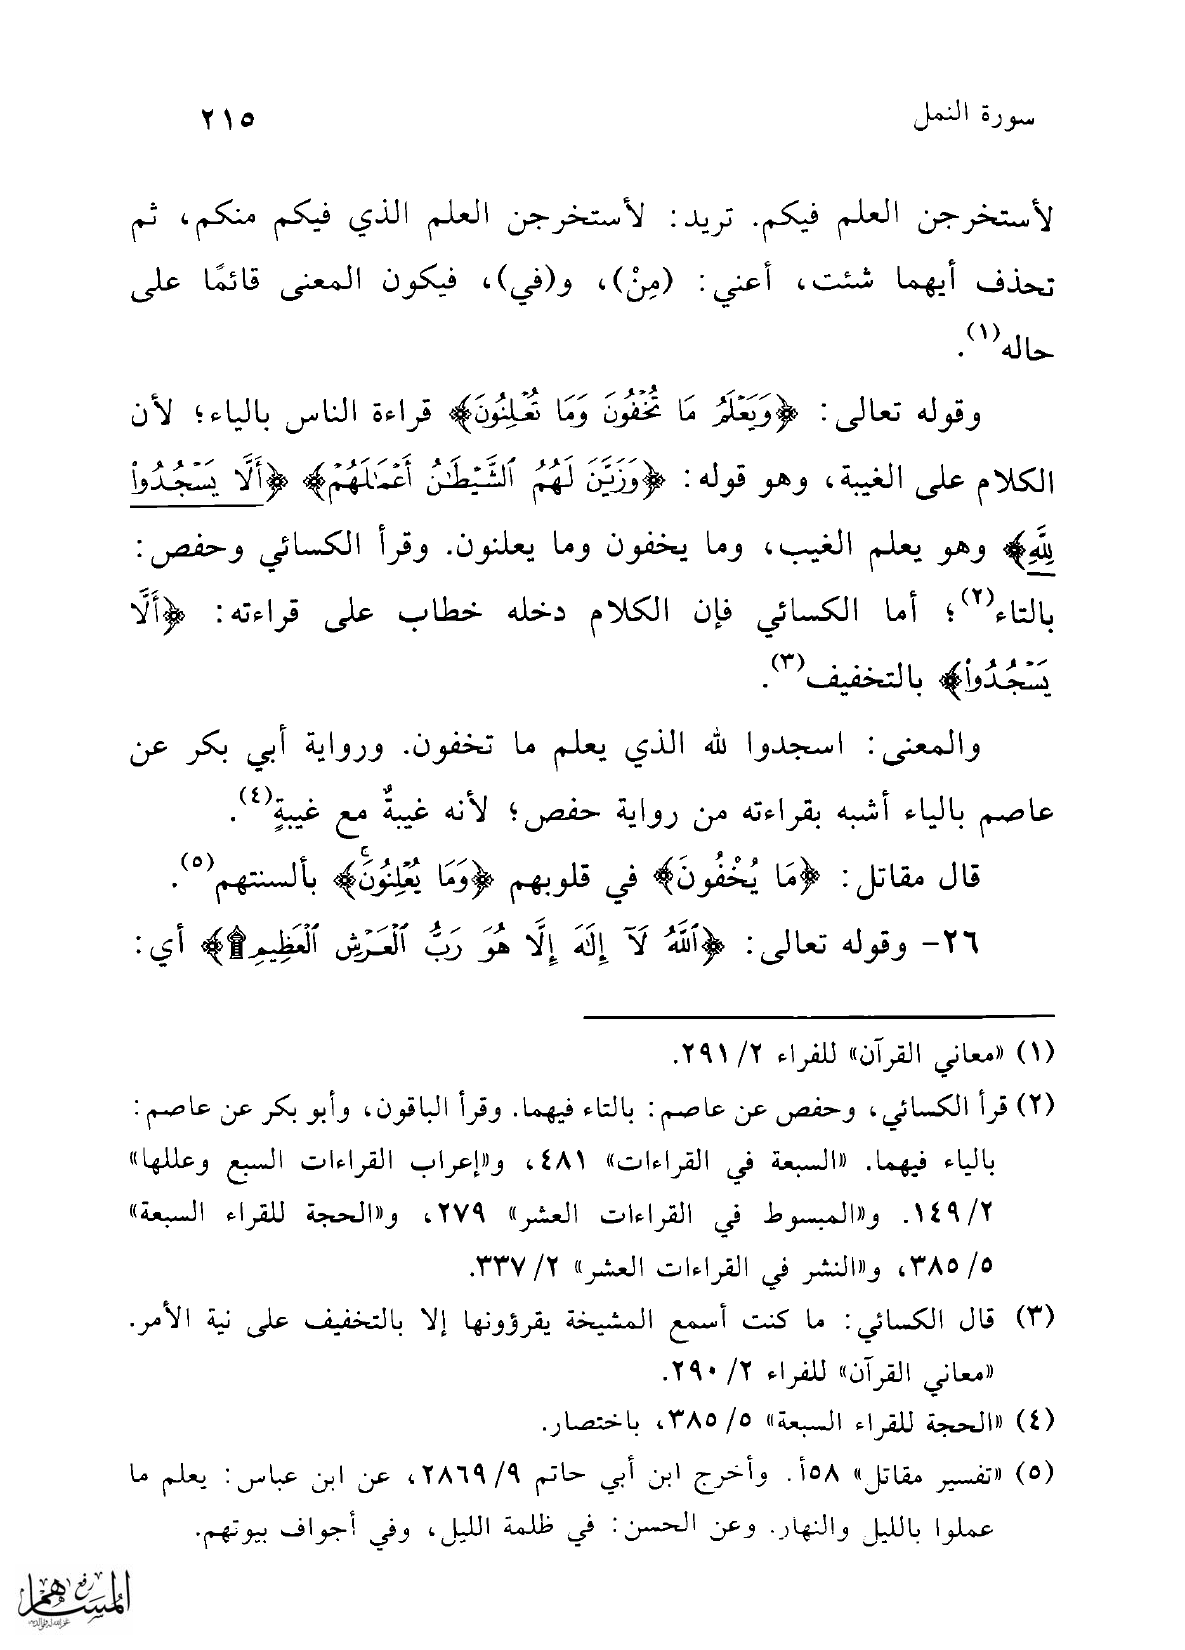 سورة النمل
٢١٥
لأستخرجن العلم فيكم. تريد: لأستخرجن العلم الذي فيكم منكم، ثم
تحذف أيهما شئت، أعني: (مِنْ)، و(في)، فيكون المعنى قائمًا على
حاله(١).
وقوله تعالى: ﴿وَيَعْلَمُ مَا تُخْفُونَ وَمَا تُعْلِنُونَ﴾ قراءة الناس بالياء؛ لأن
الكلام على الغيبة، وهو قوله: ﴿وَزَيَّنَ لَهُمُ ٱلشَّيْطَٰنُ أَعْمَٰلَهُمْ﴾ ﴿أَلَّا يَسْجُدُوا۟
لِلَّهِ﴾ وهو يعلم الغيب، وما يخفون وما يعلنون. وقرأ الكسائي وحفص:
بالتاء(٢)؛ أما الكسائي فإن الكلام دخله خطاب على قراءته: ﴿أَلَّا
يَسْجُدُوا۟﴾ بالتخفيف(٣).
والمعنى: اسجدوا لله الذي يعلم ما تخفون. ورواية أبي بكر عن
عاصم بالياء أشبه بقراءته من رواية حفص؛ لأنه غيبةٌ مع غيبةٍ(٤).
قال مقاتل: ﴿مَا يُخْفُونَ﴾ في قلوبهم ﴿وَمَا يُعْلِنُونَ﴾ بألسنتهم(٥).
٢٦- وقوله تعالى: ﴿ٱللَّهُ لَآ إِلَٰهَ إِلَّا هُوَ رَبُّ ٱلْعَرْشِ ٱلْعَظِيمِ۩﴾ أي:
(١) «معاني القرآن» للفراء ٢/ ٢٩١.
(٢) قرأ الكسائي، وحفص عن عاصم: بالتاء فيهما. وقرأ الباقون، وأبو بكر عن عاصم:
بالياء فيهما. «السبعة في القراءات» ٤٨١، و«إعراب القراءات السبع وعللها»
٢/ ١٤٩. و«المبسوط في القراءات العشر» ٢٧٩، و«الحجة للقراء السبعة»
٥/ ٣٨٥، و«النشر في القراءات العشر» ٢/ ٣٣٧.
(٣) قال الكسائي: ما كنت أسمع المشيخة يقرؤونها إلا بالتخفيف على نية الأمر.
«معاني القرآن» للفراء ٢/ ٢٩٠.
(٤) «الحجة للقراء السبعة» ٥/ ٣٨٥، باختصار.
(٥) «تفسير مقاتل» ٥٨أ. وأخرج ابن أبي حاتم ٩/ ٢٨٦٩، عن ابن عباس: يعلم ما
عملوا بالليل والنهار. وعن الحسن: في ظلمة الليل، وفي أجواف بيوتهم.